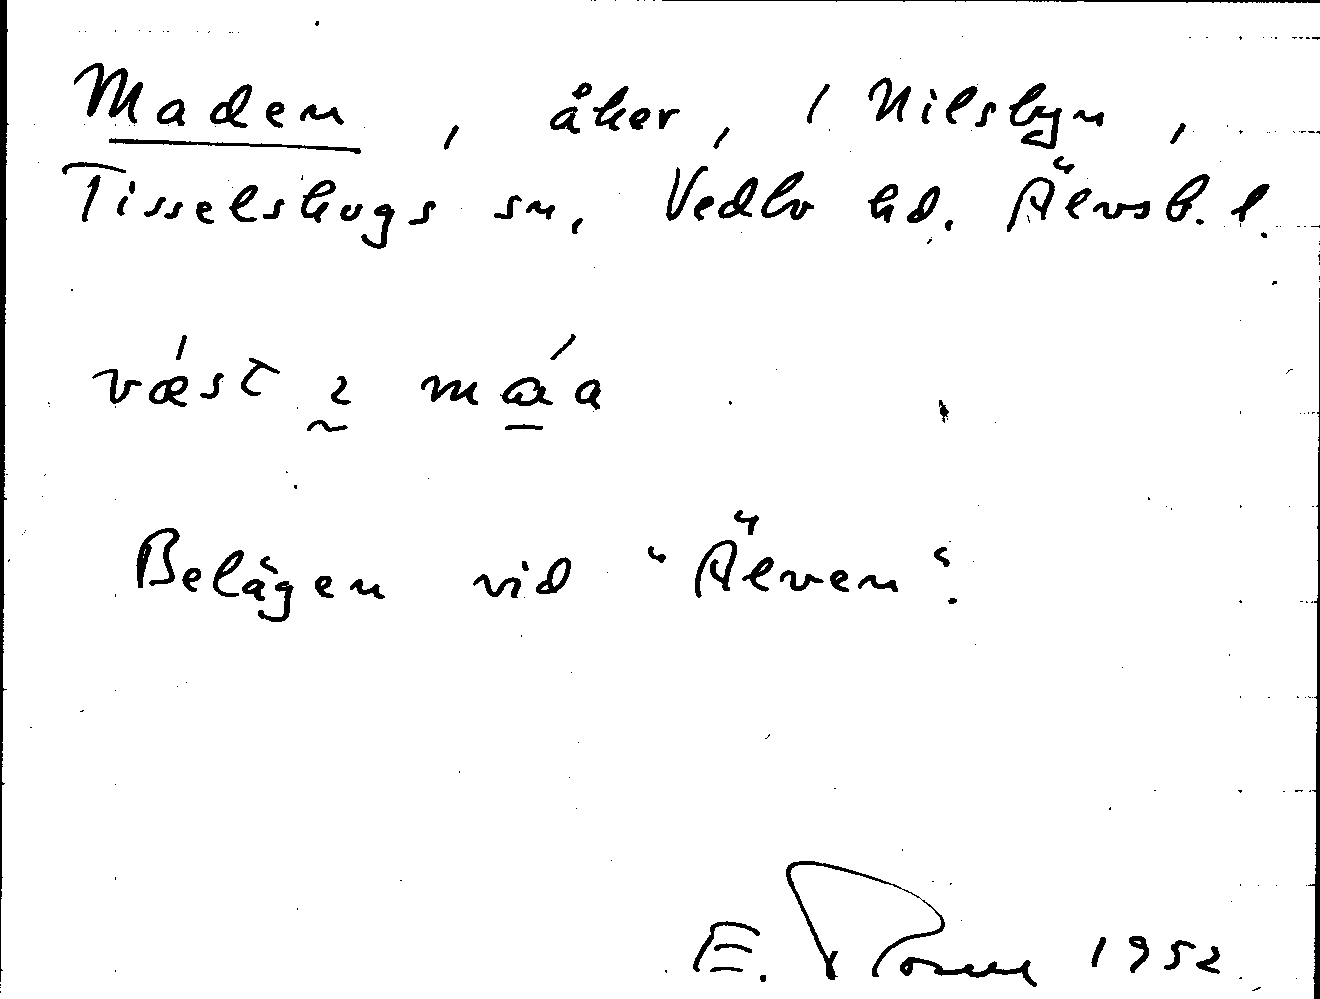 Maden, åker, 1 Nilsbyn,
Tisselskogs sn, Vedbo hd. Älvsb. l.
væ´st ɿ mɑ´a
Belägen vid "Älven".
E. 1952